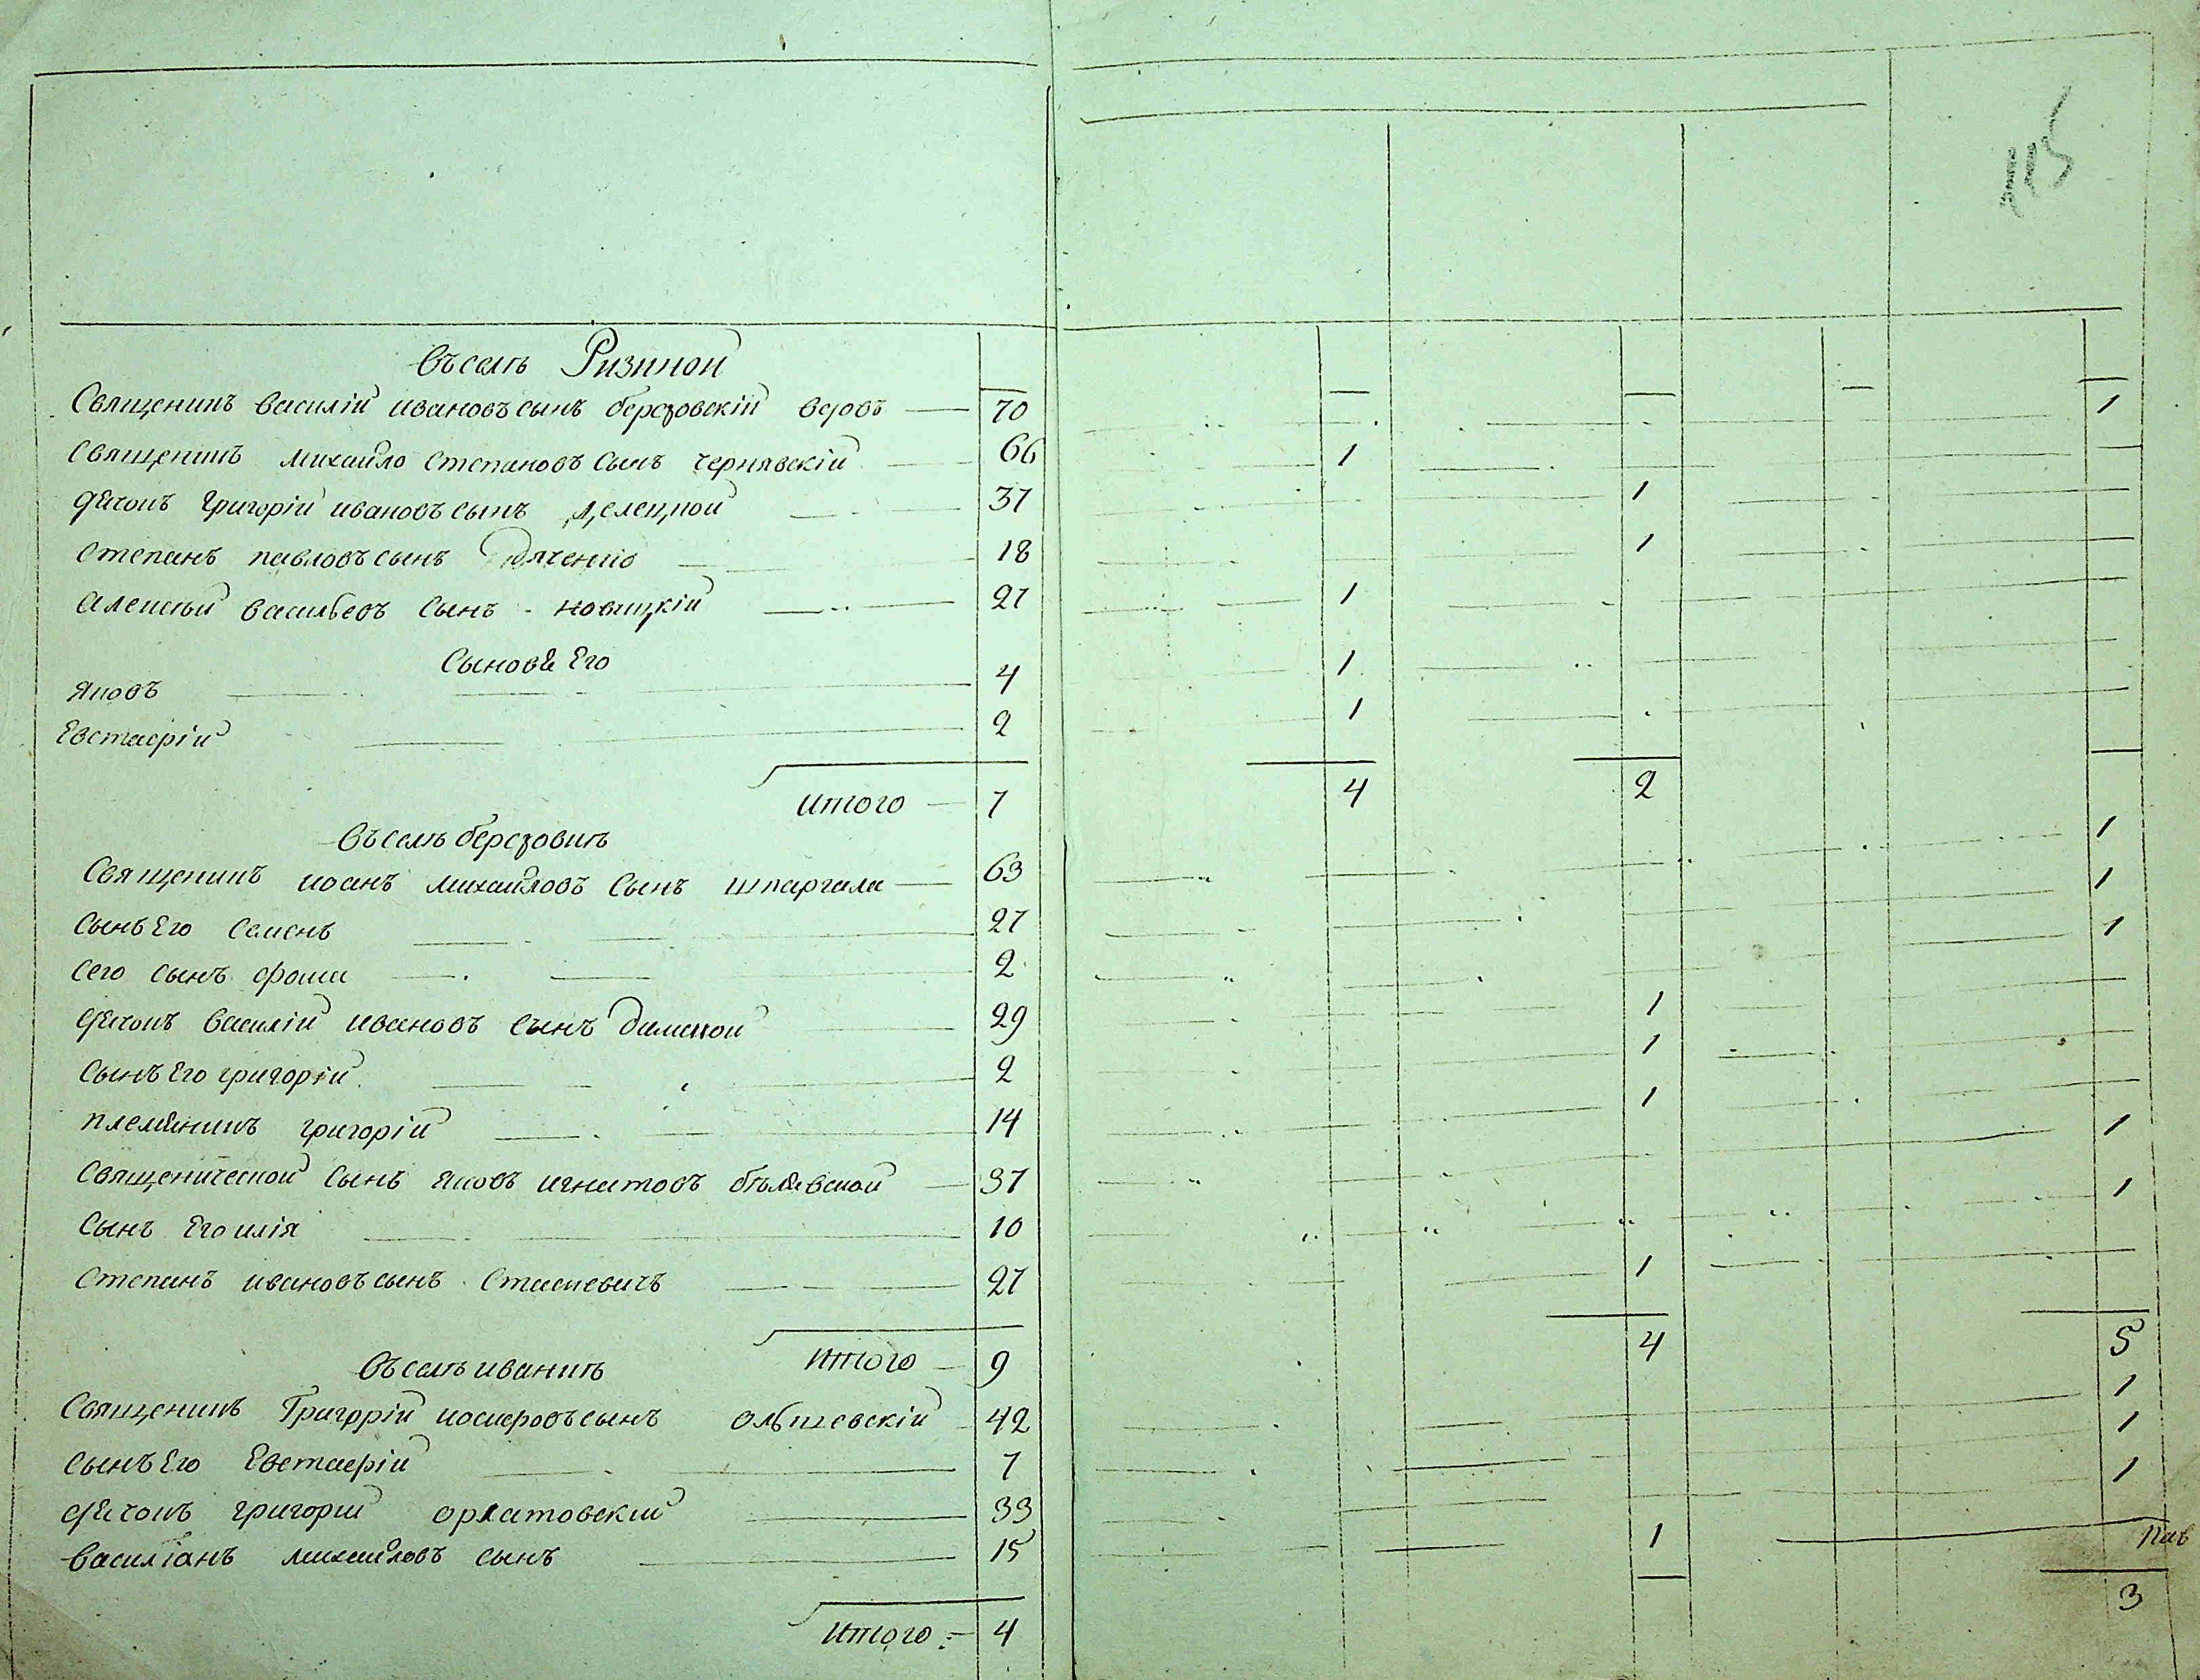 115
Въ селѣ Ризиной
Священикъ василій ивановъ сынъ березовскій вдовъ — 70 1
Священикъ михайло степановъ сынъ чернявскій 66 1
дьячокъ григорій ивановъ сынъ 37 1
степанъ павловъ сынъ дяченко 18 1
алексѣй васильевъ сынъ новицкій 27 1
Сыновя его
яковъ 4 1
Евстафій 2 1
Итого — 7 4 2
Въ селѣ березовкѣ
Священикъ иоанъ михайловъ сынъ шпаргала — 63 1
сынъ его семенъ 27 1
сего сынъ фома 2 1
дьячокъ василій ивановъ сынъ 29 1
сынъ его григорій 2 1
племянникъ григорій 14 1
священической сынъ яковъ игнатовъ бѣлявской — 37 1
сынъ его илія 10 1
степанъ ивановъ сынъ стаскевичъ 27 1
Итого — 9 4 5
Въ селѣ иванкѣ
Священикъ Григорій иосифовъ сынъ ольшевскій 42 1
сынъ его Евстафій 7 1
дьячокъ григорій 33 1
василіанъ михайловъ сынъ 15 1
Итого — 4 3